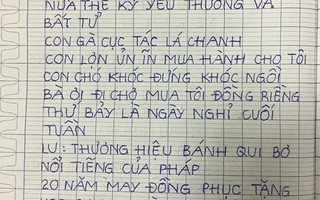 NỬA THẾ KỶ YÊU THƯƠNG VÀ
BẤT TỬ
CON GÀ CỤC TÁC LÁ CHANH
CON LỢN ỦN ỈN MUA HÀNH CHO TÔI
CON CHÓ KHÓC ĐỨNG KHÓC NGỒI
BÀ ƠI ĐI CHỢ MUA TÔI ĐỒNG RIỀNG
THỨ BẢY LÀ NGÀY NGHỈ CUỐI
TUẦN
LU: THƯƠNG HIỆU BÁNH QUI BƠ
NỔI TIẾNG CỦA PHÁP
20 NĂM MAY ĐỒNG PHỤC TẶNG